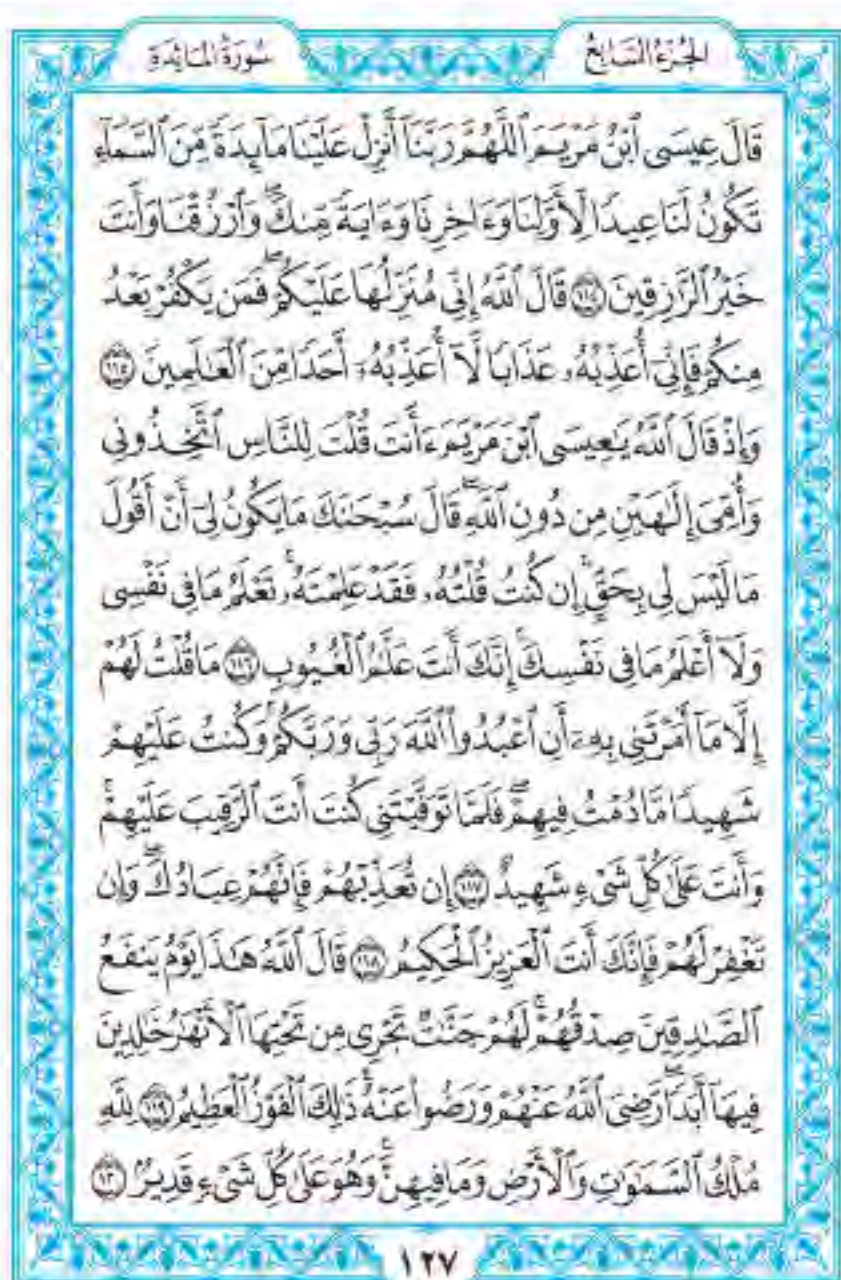 الجزء السابع
سورة المائدة
قَالَ عِيسَى ٱبْنُ مَرْيَمَ ٱللَّهُمَّ رَبَّنَآ أَنزِلْ عَلَيْنَا مَآئِدَةً مِّنَ ٱلسَّمَآءِ
تَكُونُ لَنَا عِيدًا لِّأَوَّلِنَا وَءَاخِرِنَا وَءَايَةً مِّنكَۖ وَٱرْزُقْنَا وَأَنتَ
خَيْرُ ٱلرَّٰزِقِينَ ١١٤ قَالَ ٱللَّهُ إِنِّى مُنَزِّلُهَا عَلَيْكُمْۖ فَمَن يَكْفُرْ بَعْدُ
مِنكُمْ فَإِنِّىٓ أُعَذِّبُهُۥ عَذَابًا لَّآ أُعَذِّبُهُۥٓ أَحَدًا مِّنَ ٱلْعَٰلَمِينَ ١١٥
وَإِذْ قَالَ ٱللَّهُ يَٰعِيسَى ٱبْنَ مَرْيَمَ ءَأَنتَ قُلْتَ لِلنَّاسِ ٱتَّخِذُونِى
وَأُمِّىَ إِلَٰهَيْنِ مِن دُونِ ٱللَّهِۖ قَالَ سُبْحَٰنَكَ مَا يَكُونُ لِىٓ أَنْ أَقُولَ
مَا لَيْسَ لِى بِحَقٍّۚ إِن كُنتُ قُلْتُهُۥ فَقَدْ عَلِمْتَهُۥۚ تَعْلَمُ مَا فِى نَفْسِى
وَلَآ أَعْلَمُ مَا فِى نَفْسِكَۚ إِنَّكَ أَنتَ عَلَّٰمُ ٱلْغُيُوبِ ١١٦ مَا قُلْتُ لَهُمْ
إِلَّا مَآ أَمَرْتَنِى بِهِۦٓ أَنِ ٱعْبُدُوا۟ ٱللَّهَ رَبِّى وَرَبَّكُمْۚ وَكُنتُ عَلَيْهِمْ
شَهِيدًا مَّا دُمْتُ فِيهِمْۖ فَلَمَّا تَوَفَّيْتَنِى كُنتَ أَنتَ ٱلرَّقِيبَ عَلَيْهِمْۚ
وَأَنتَ عَلَىٰ كُلِّ شَىْءٍ شَهِيدٌ ١١٧ إِن تُعَذِّبْهُمْ فَإِنَّهُمْ عِبَادُكَۖ وَإِن
تَغْفِرْ لَهُمْ فَإِنَّكَ أَنتَ ٱلْعَزِيزُ ٱلْحَكِيمُ ١١٨ قَالَ ٱللَّهُ هَٰذَا يَوْمُ يَنفَعُ
ٱلصَّٰدِقِينَ صِدْقُهُمْۚ لَهُمْ جَنَّٰتٌ تَجْرِى مِن تَحْتِهَا ٱلْأَنْهَٰرُ خَٰلِدِينَ
فِيهَآ أَبَدًاۖ رَّضِىَ ٱللَّهُ عَنْهُمْ وَرَضُوا۟ عَنْهُۚ ذَٰلِكَ ٱلْفَوْزُ ٱلْعَظِيمُ ١١٩ لِلَّهِ
مُلْكُ ٱلسَّمَٰوَٰتِ وَٱلْأَرْضِ وَمَا فِيهِنَّۚ وَهُوَ عَلَىٰ كُلِّ شَىْءٍ قَدِيرٌۢ ١٢٠
١٢٧